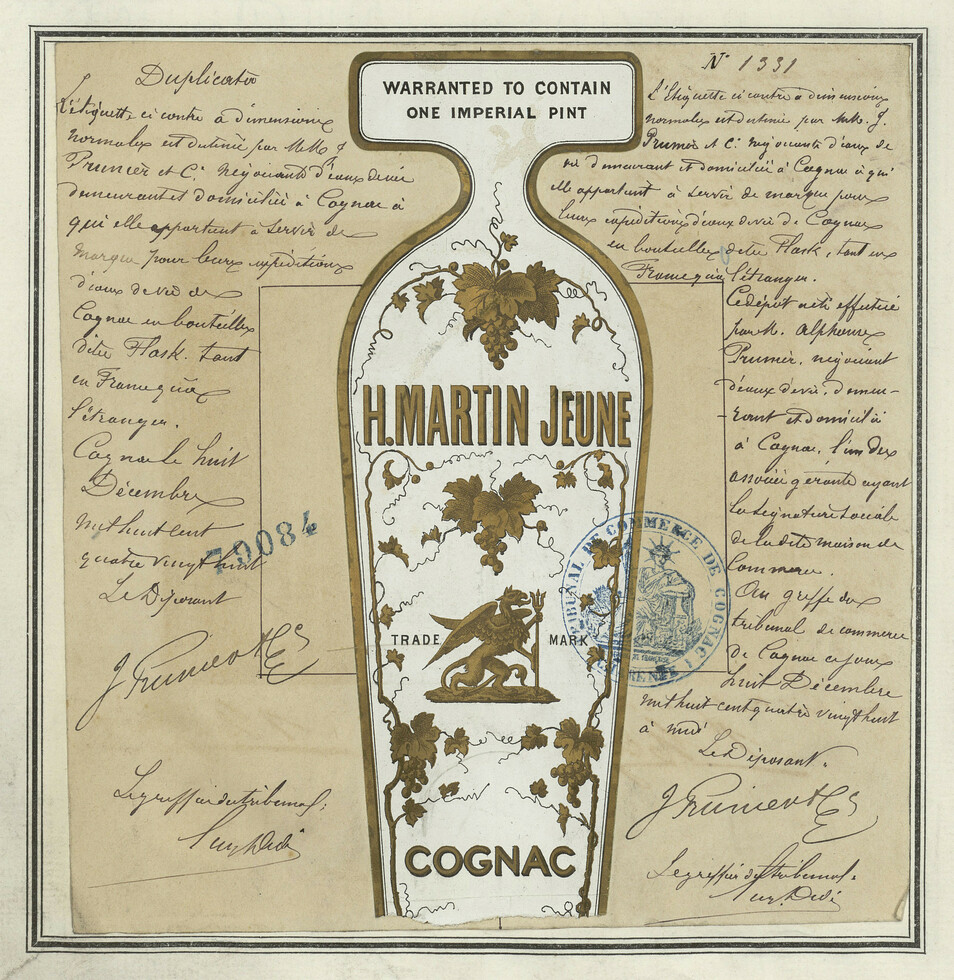 Duplicata
L'étiquette ci contre à dimensions
normales est destinée par MM. J.
Prunier et Cie négociants d'eaux de vie
demeurant et domiciliés à Cognac à
qui elle appartient à servir de
marque pour leurs expéditions
d'eaux de vie de
Cognac en bouteilles
dites Flask. tant
en France qu'à
l'étranger.
Cognac le huit
Décembre
mil huit cent
quatre vingt huit
Le Déposant
J Prunier & Cie
Le greffier du tribunal:
70084
WARRANTED TO CONTAIN
ONE IMPERIAL PINT
H. MARTIN JEUNE
TRADE MARK
COGNAC
TRIBUNAL DE COMMERCE DE COGNAC
N° 1331
L'Etiquette ci contre à dimensions
normales est destinée par MM. J.
Prunier et Cie négociants d'eaux de
vie demeurant et domiciliés à Cognac à qui
elle appartient à servir de marque pour
leurs expéditions d'eaux de vie de Cognac
en bouteilles dites Flask, tant en
France qu'à l'étranger.
Ce dépôt a été effectué
par M. Alphonse
Prunier, négociant
d'eaux de vie, demeu-
-rant et domicilié
à Cognac, l'un des
associés gérants ayant
la signature sociale
de la dite maison de
Commerce.
Au greffe du
tribunal de commerce
de Cognac ce jour
huit Décembre
mil huit cent quatre vingt huit
à midi
Le Déposant.
J Prunier & Cie
Le greffier du tribunal: